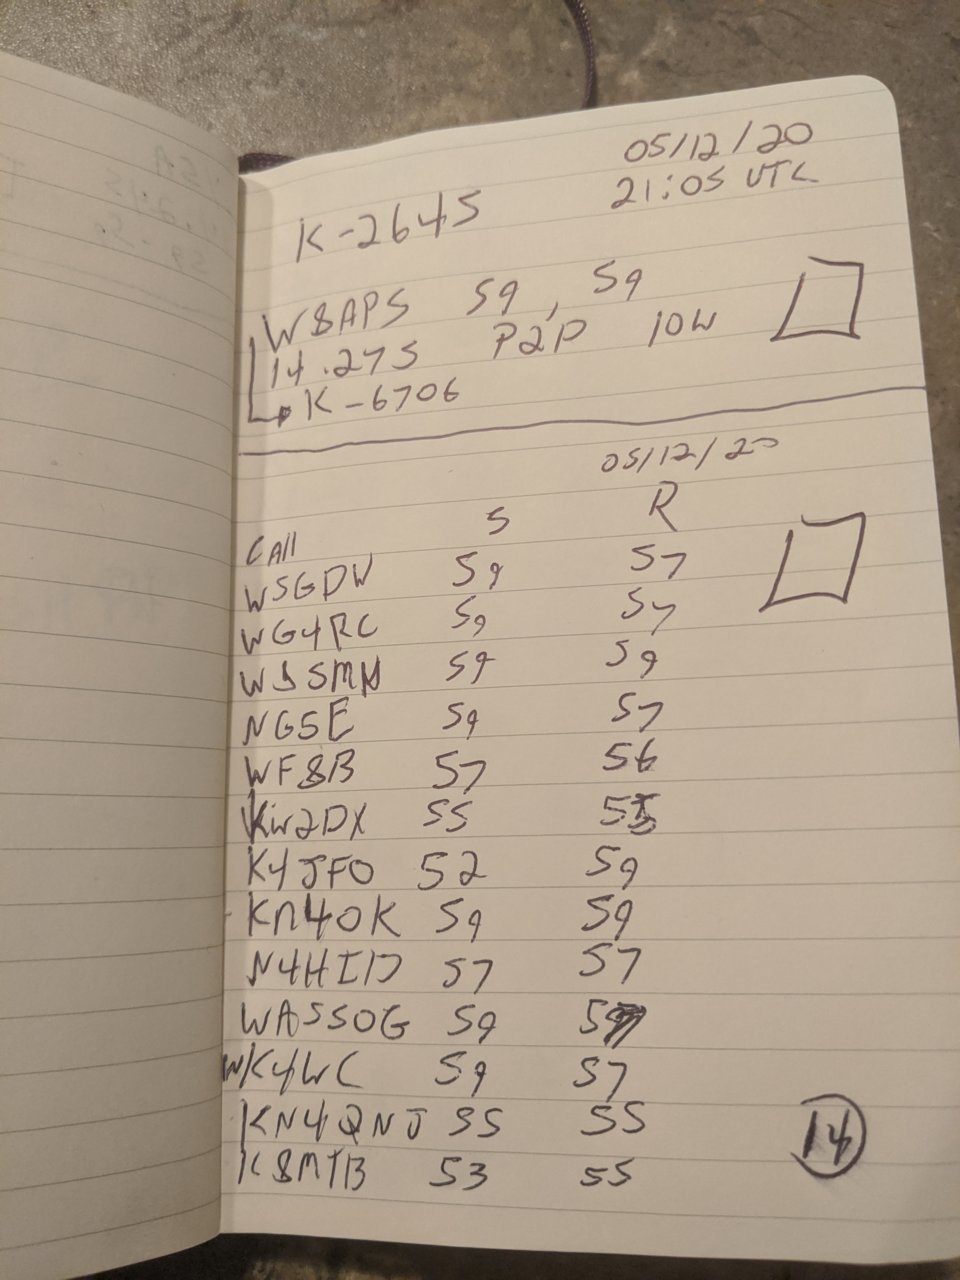 05/12/20
21:05 UTC
K-2645
W8APS 59, 59
14.275 P2P 10W
K-6706
05/12/20
Call S R
W5GDW 59 57
WG4RC 59 57
59 59
NG5E 59 57
WF8B 57 56
KW2DX 55 55
K4JFO 52 59
KN4OK 59 59
N4HID 57 57
WA5SOG 59
WK4WC 59 57
KN4QNJ 55 55
K8MTB 53 55
14